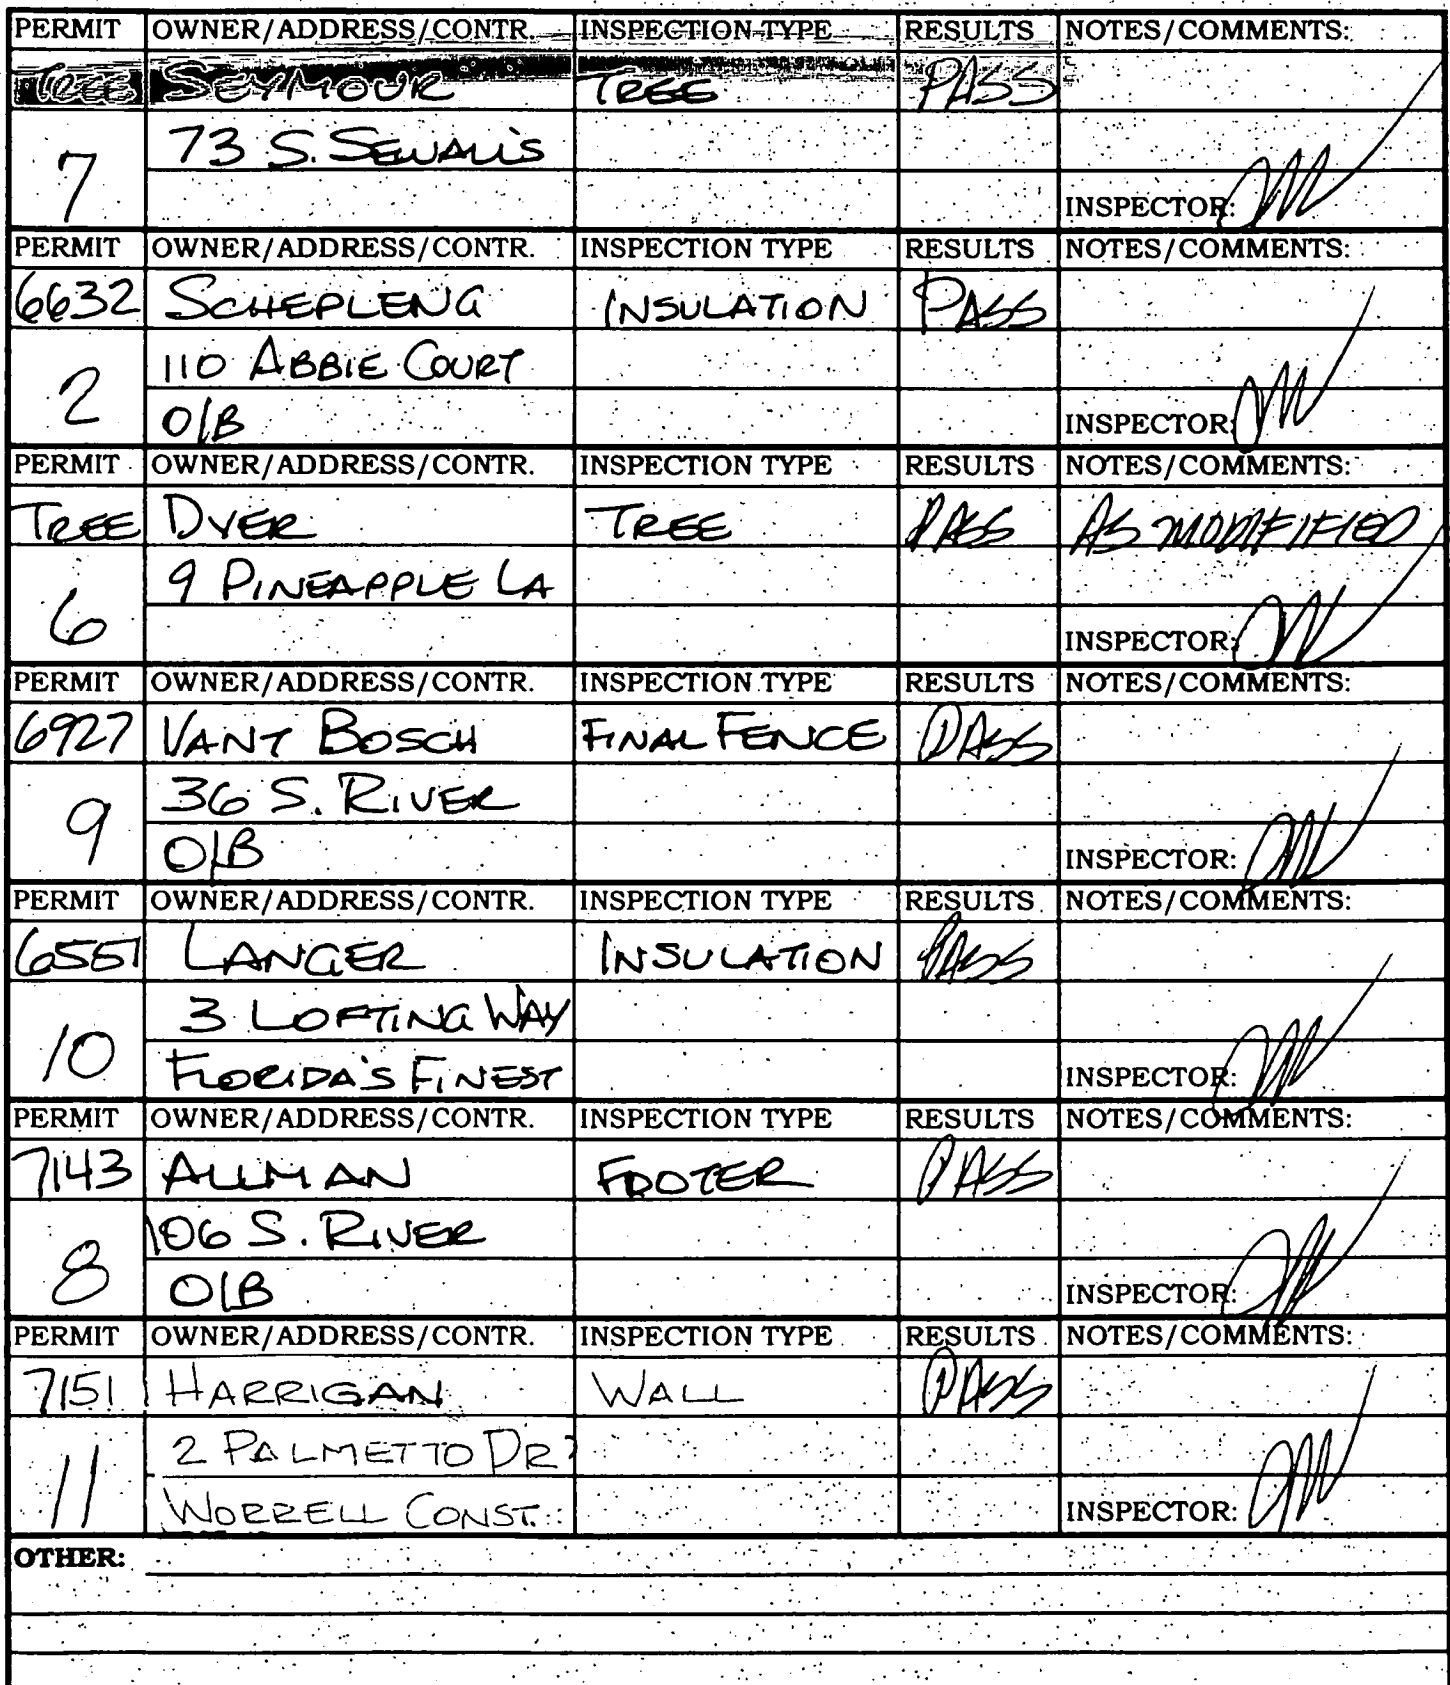 PERMIT OWNER/ADDRESS/CONTR. INSPECTION TYPE RESULTS NOTES/COMMENTS:
TREE SEYMOUR TREE PASS
7 73 S. SEWALL'S
INSPECTOR:
PERMIT OWNER/ADDRESS/CONTR. INSPECTION TYPE RESULTS NOTES/COMMENTS:
6632 SCHEPLENG INSULATION PASS
2 110 ABBIE COURT
O/B INSPECTOR:
PERMIT OWNER/ADDRESS/CONTR. INSPECTION TYPE RESULTS NOTES/COMMENTS:
TREE DYER TREE PASS AS MODIFIFIED
6 9 PINEAPPLE LA
INSPECTOR:
PERMIT OWNER/ADDRESS/CONTR. INSPECTION TYPE RESULTS NOTES/COMMENTS:
6927 VANT BOSCH FINAL FENCE PASS
9 36 S. RIVER
O/B INSPECTOR:
PERMIT OWNER/ADDRESS/CONTR. INSPECTION TYPE RESULTS NOTES/COMMENTS:
6551 LANGER INSULATION PASS
10 3 LOFTING WAY
FLORIDA'S FINEST INSPECTOR:
PERMIT OWNER/ADDRESS/CONTR. INSPECTION TYPE RESULTS NOTES/COMMENTS:
7143 ALLMAN FOOTER PASS
8 106 S. RIVER
O/B INSPECTOR:
PERMIT OWNER/ADDRESS/CONTR. INSPECTION TYPE RESULTS NOTES/COMMENTS:
7151 HARRIGAN WALL PASS
11 2 PALMETTO DR
WORRELL CONST. INSPECTOR:
OTHER: